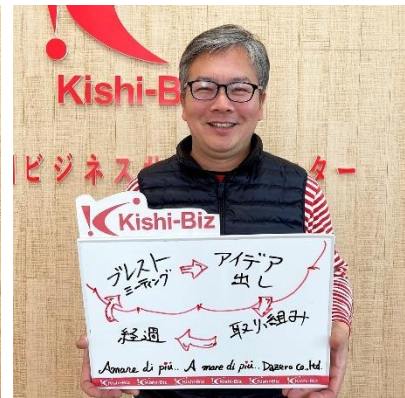 Kishi-B
ビジネス
ター
Kishi-Biz
ブレスト ⇒ アイデア
ミーティング 出し
経週 ⇐ 取り組み
Amare di più... A mare di più... Dazero co.,ltd.
Kishi-Biz Kishi-Biz Kishi-Biz Kishi-Biz Kishi-Biz Kishi-Biz